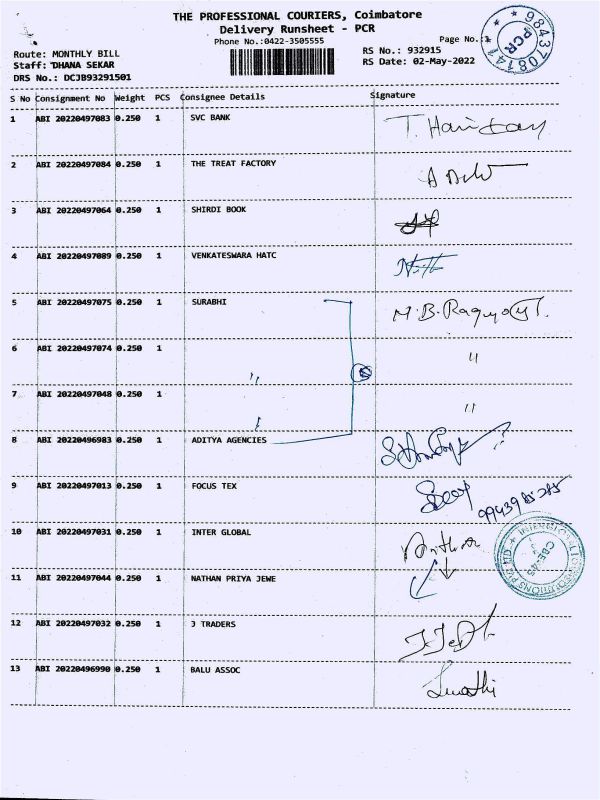 THE PROFESSIONAL COURIERS, Coimbatore
Delivery Runsheet - PCR
Phone No.:0422-3505555
Page No.:1
Route: MONTHLY BILL
Staff: DHANA SEKAR
DRS No.: DCJB93291501
RS No.: 932915
RS Date: 02-May-2022
9843708141
PCR
S No Consignment No Weight PCS Consignee Details Signature
1 ABI 20220497083 0.250 1 SVC BANK
2 ABI 20220497084 0.250 1 THE TREAT FACTORY
3 ABI 20220497064 0.250 1 SHIRDI BOOK
4 ABI 20220497089 0.250 1 VENKATESWARA HATC
5 ABI 20220497075 0.250 1 SURABHI
6 ABI 20220497074 0.250 1 "
7 ABI 20220497048 0.250 1
8 ABI 20220496983 0.250 1 ADITYA AGENCIES
9 ABI 20220497013 0.250 1 FOCUS TEX
10 ABI 20220497031 0.250 1 INTER GLOBAL
11 ABI 20220497044 0.250 1 NATHAN PRIYA JEWE
12 ABI 20220497032 0.250 1 J TRADERS
13 ABI 20220496990 0.250 1 BALU ASSOC Swathi